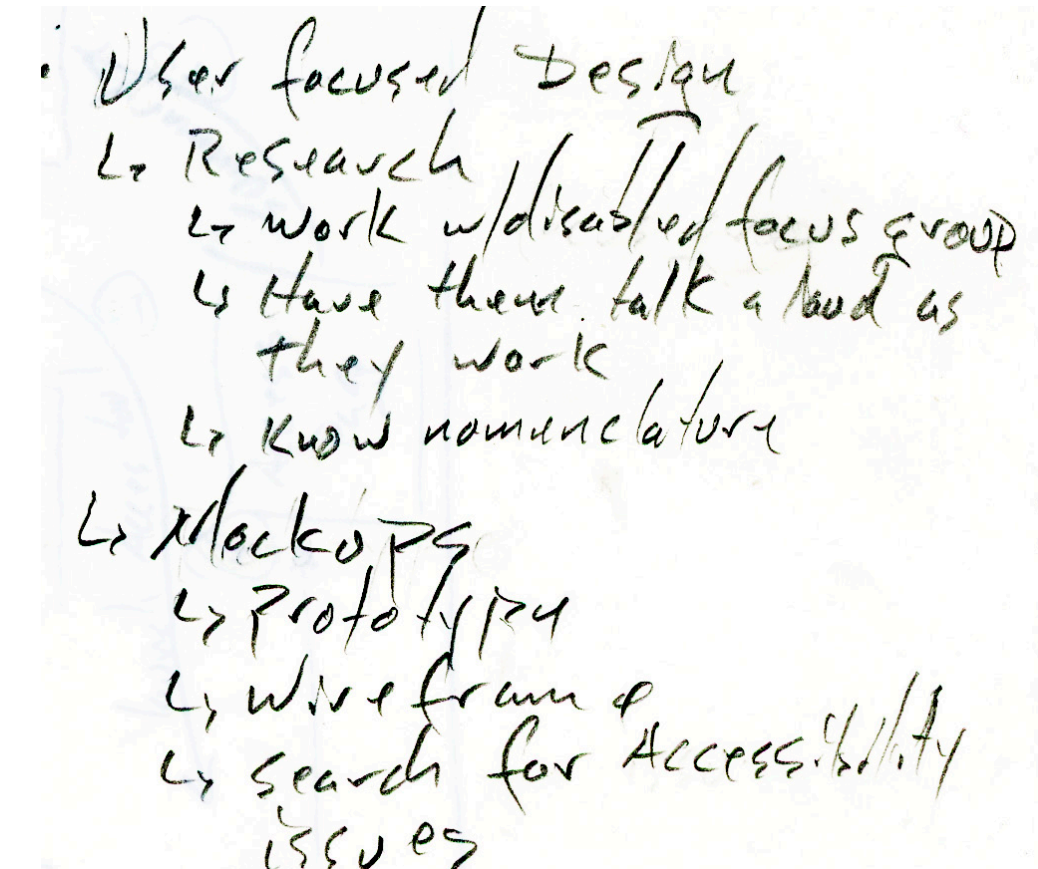 • User focused Design
↳ Research
↳ Work w/disabled focus group
↳ Have them talk a loud as
they work
↳ Know nomenclature
↳ Mockups
↳ Prototype
↳ Wireframe
↳ Search for Accessibility
issues